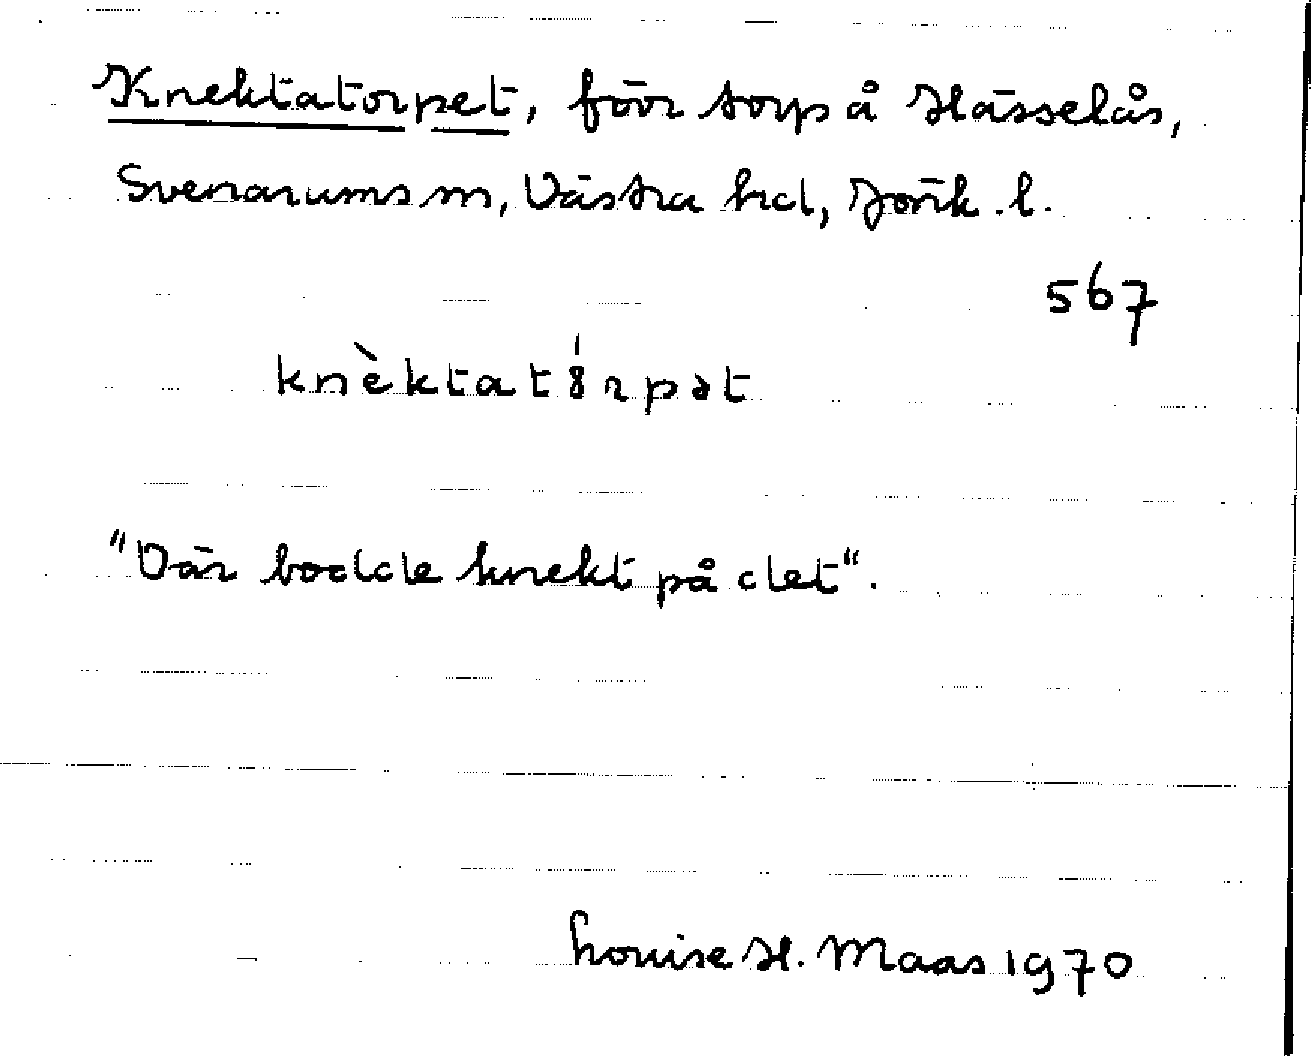 Knektatorpet, förr torp å Hässelås,
Svenarums sn, Västra hd, Jönk. l.
567
knèktat8́rpət
"Där bodde knekt på det".
Louise H. Maas 1970